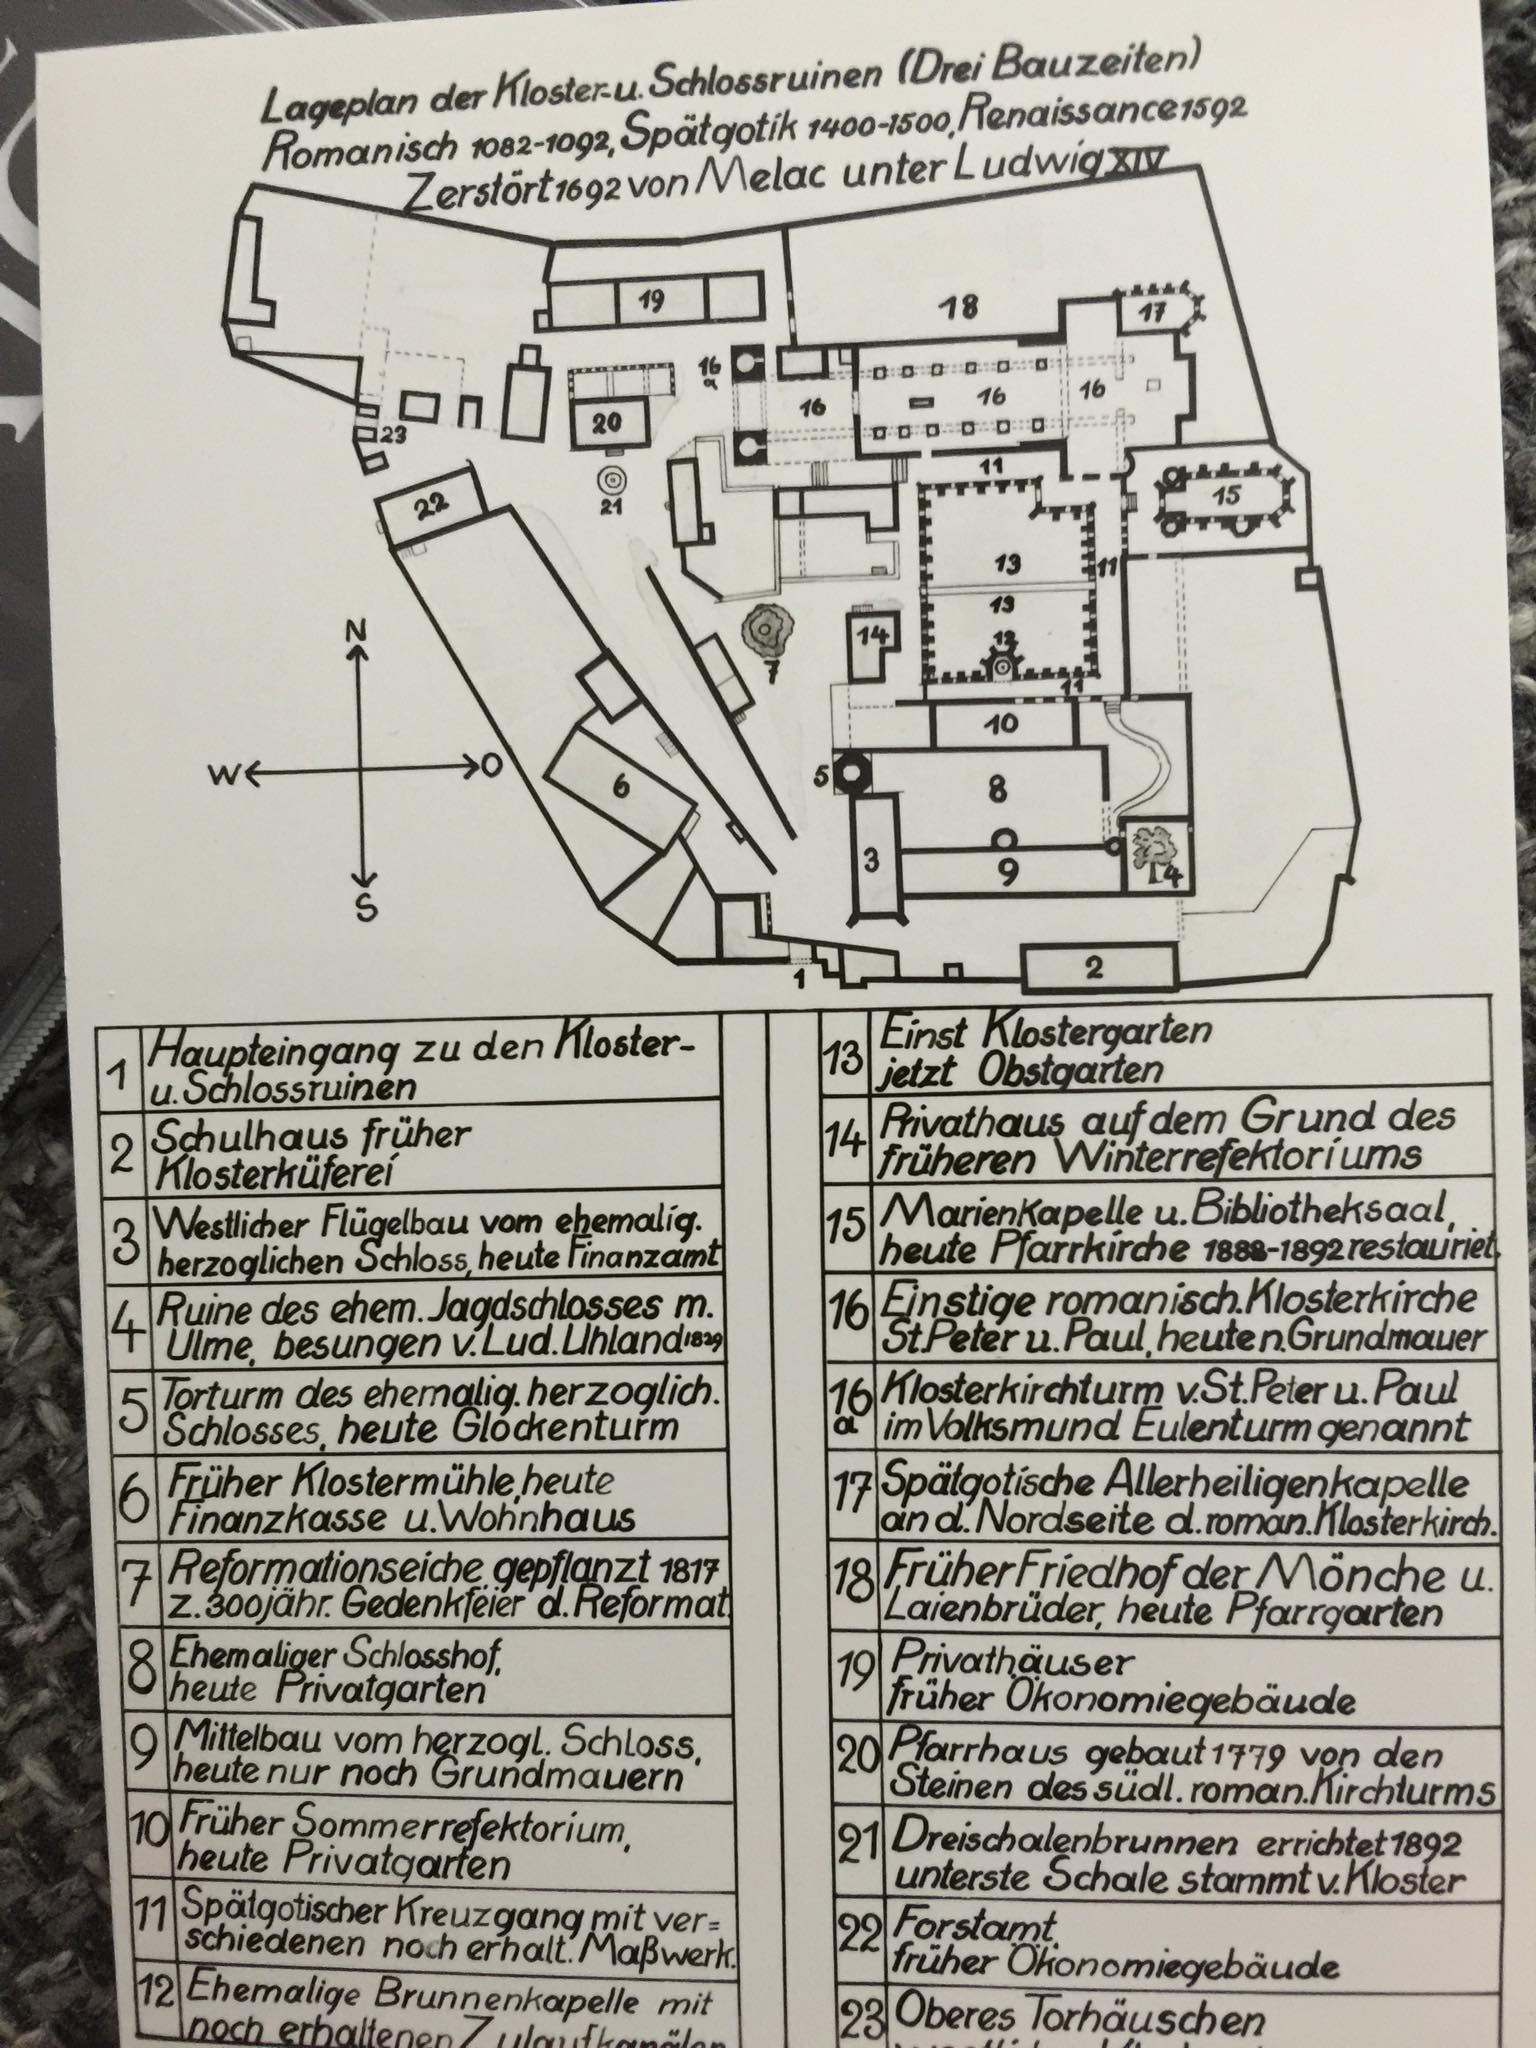 Lageplan der Kloster-u. Schlossruinen (Drei Bauzeiten)
Romanisch 1082-1092, Spätgotik 1400-1500, Renaissance 1592
Zerstört 1692 von Melac unter Ludwig XIV
19
18
17
16
a
16
16
16
20
23
11
15
22
21
13
11
13
14
12
7
N
11
10
W
O
5
6
8
3
9
4
S
2
1
1 Haupteingang zu den Kloster-
u. Schlossruinen
2 Schulhaus früher
Klosterküferei
3 Westlicher Flügelbau vom ehemalig.
herzoglichen Schloss, heute Finanzamt
4 Ruine des ehem. Jagdschlosses m.
Ulme, besungen v. Lud. Uhland 1829
5 Torturm des ehemalig. herzoglich.
Schlosses, heute Glockenturm
6 Früher Klostermühle, heute
Finanzkasse u. Wohnhaus
7 Reformationseiche gepflanzt 1817
z. 300jähr. Gedenkfeier d. Reformat.
8 Ehemaliger Schlosshof,
heute Privatgarten
9 Mittelbau vom herzogl. Schloss,
heute nur noch Grundmauern
10 Früher Sommerrefektorium,
heute Privatgarten
11 Spätgotischer Kreuzgang mit ver=
schiedenen noch erhalt. Maßwerk.
12 Ehemalige Brunnenkapelle mit
noch erhaltenen Zulaufkanälen
13 Einst Klostergarten
jetzt Obstgarten
14 Privathaus auf dem Grund des
früheren Winterrefektoriums
15 Marienkapelle u. Bibliotheksaal,
heute Pfarrkirche 1888-1892 restauriet.
16 Einstige romanisch. Klosterkirche
St. Peter u. Paul, heute n. Grundmauer
16 a Klosterkirchturm v. St. Peter u. Paul
im Volksmund Eulenturm genannt
17 Spätgotische Allerheiligenkapelle
an d. Nordseite d. roman. Klosterkirch.
18 Früher Friedhof der Mönche u.
Laienbrüder, heute Pfarrgarten
19 Privathäuser
früher Ökonomiegebäude
20 Pfarrhaus gebaut 1779 von den
Steinen des südl. roman. Kirchturms
21 Dreischalenbrunnen errichtet 1892
unterste Schale stammt v. Kloster
22 Forstamt,
früher Ökonomiegebäude
23 Oberes Torhäuschen